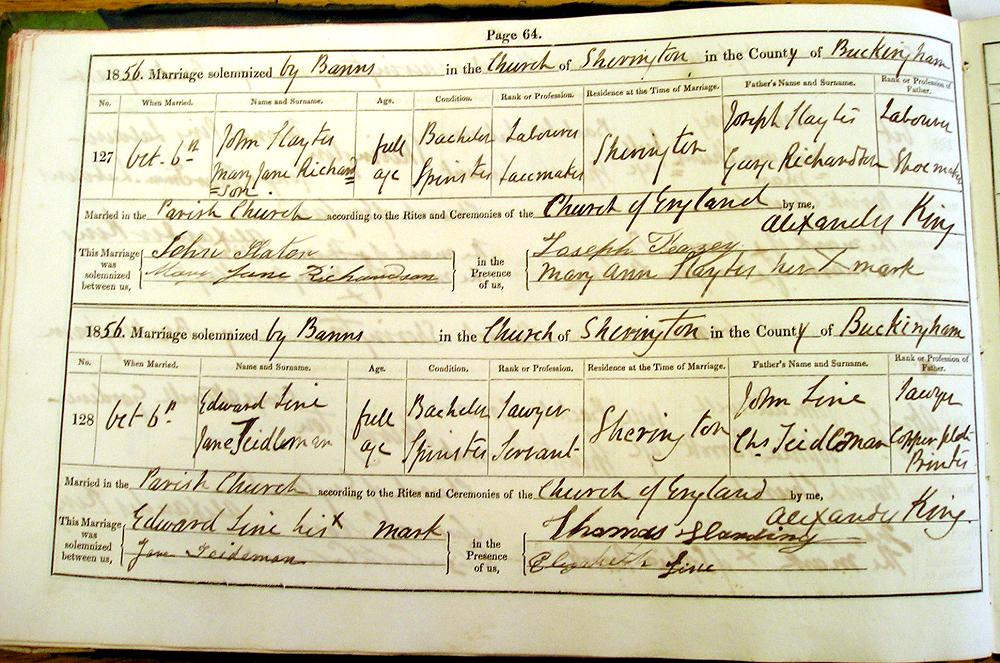 Page 64.
1856. Marriage solemnized by Banns in the Church of Sherington in the County of Buckingham
No. When Married. Name and Surname. Age. Condition. Rank or Profession. Residence at the Time of Marriage. Father's Name and Surname. Rank or Profession of Father.
127 Oct. 6th John Slayter full Bachelor Labourer Sherington Joseph Slayter Labourer
Mary Jane Richard= age Spinster Lacemaker George Richardson Shoemaker
=son
Married in the Parish Church according to the Rites and Ceremonies of the Church of England by me,
Alexander King
This Marriage was solemnized between us, John Slator in the Presence of us, Joseph
Mary Jane Richardson Mary Ann Slayter her X mark
1856. Marriage solemnized by Banns in the Church of Sherington in the County of Buckingham
No. When Married. Name and Surname. Age. Condition. Rank or Profession. Residence at the Time of Marriage. Father's Name and Surname. Rank or Profession of Father.
128 Oct 6th Edward Line full Bachelor Sawyer Sherington John Line Sawyer
Jane Teidleman age Spinster Servant Chs Teidleman Copper plate
Printer
Married in the Parish Church according to the Rites and Ceremonies of the Church of England by me,
Alexander King.
This Marriage was solemnized between us, Edward Line his X mark in the Presence of us, Thomas
Jane Teideman Elizabeth Line